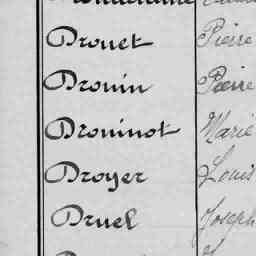 Drouet Pierre
Drouin Pierre
Drouinot Marie
Droyer Louis
Druel Joseph